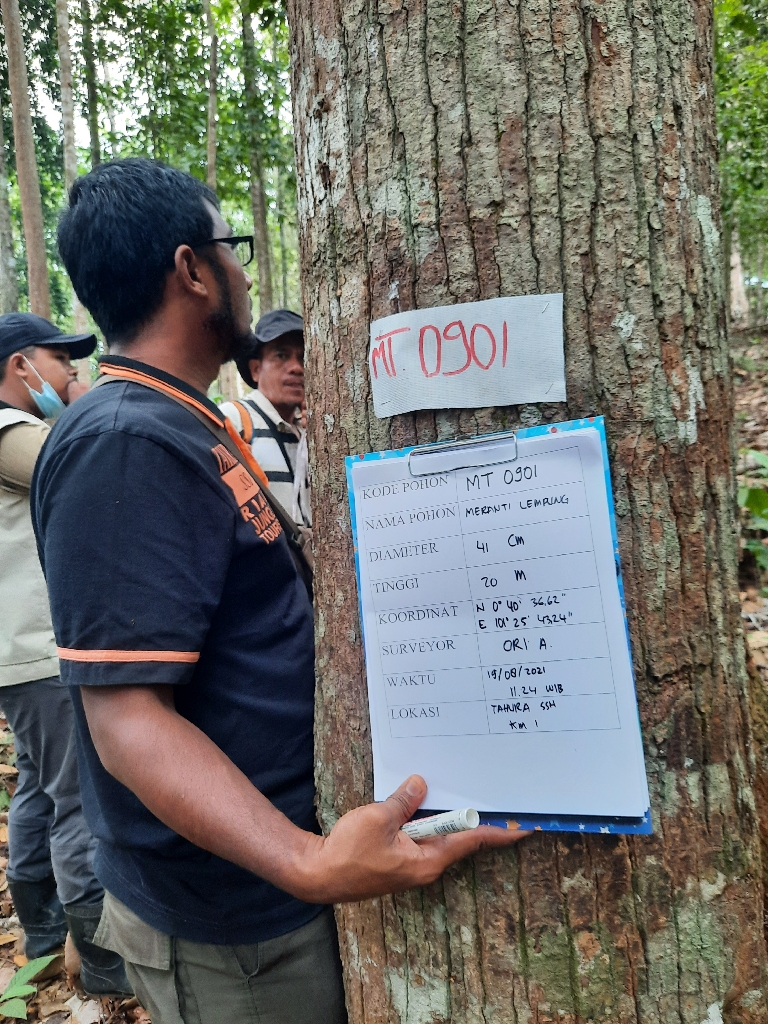 MT. 0901
KODE POHON MT 0901
NAMA POHON MERANTI LEMPUNG
DIAMETER 41 CM
TINGGI 20 M
KOORDINAT N 0° 40' 36.62"
E 101° 25' 43.24"
SURVEYOR ORI A.
WAKTU 19/08/2021
11.24 WIB
LOKASI TAHURA SSH
KM 1